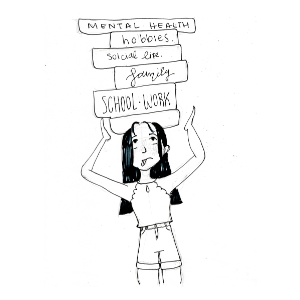 MENTAL HEALTH
hobbies.
social life.
family
SCHOOL-WORK